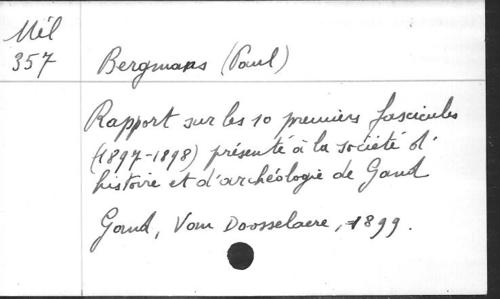 Mél
357
Bergmans (Paul)
Rapport sur les 10 premiers fascicules
(1897-1898) présenté à la société d'
histoire et d'archéologie de Gand
Gand, Vam Doosselaere, 1899.